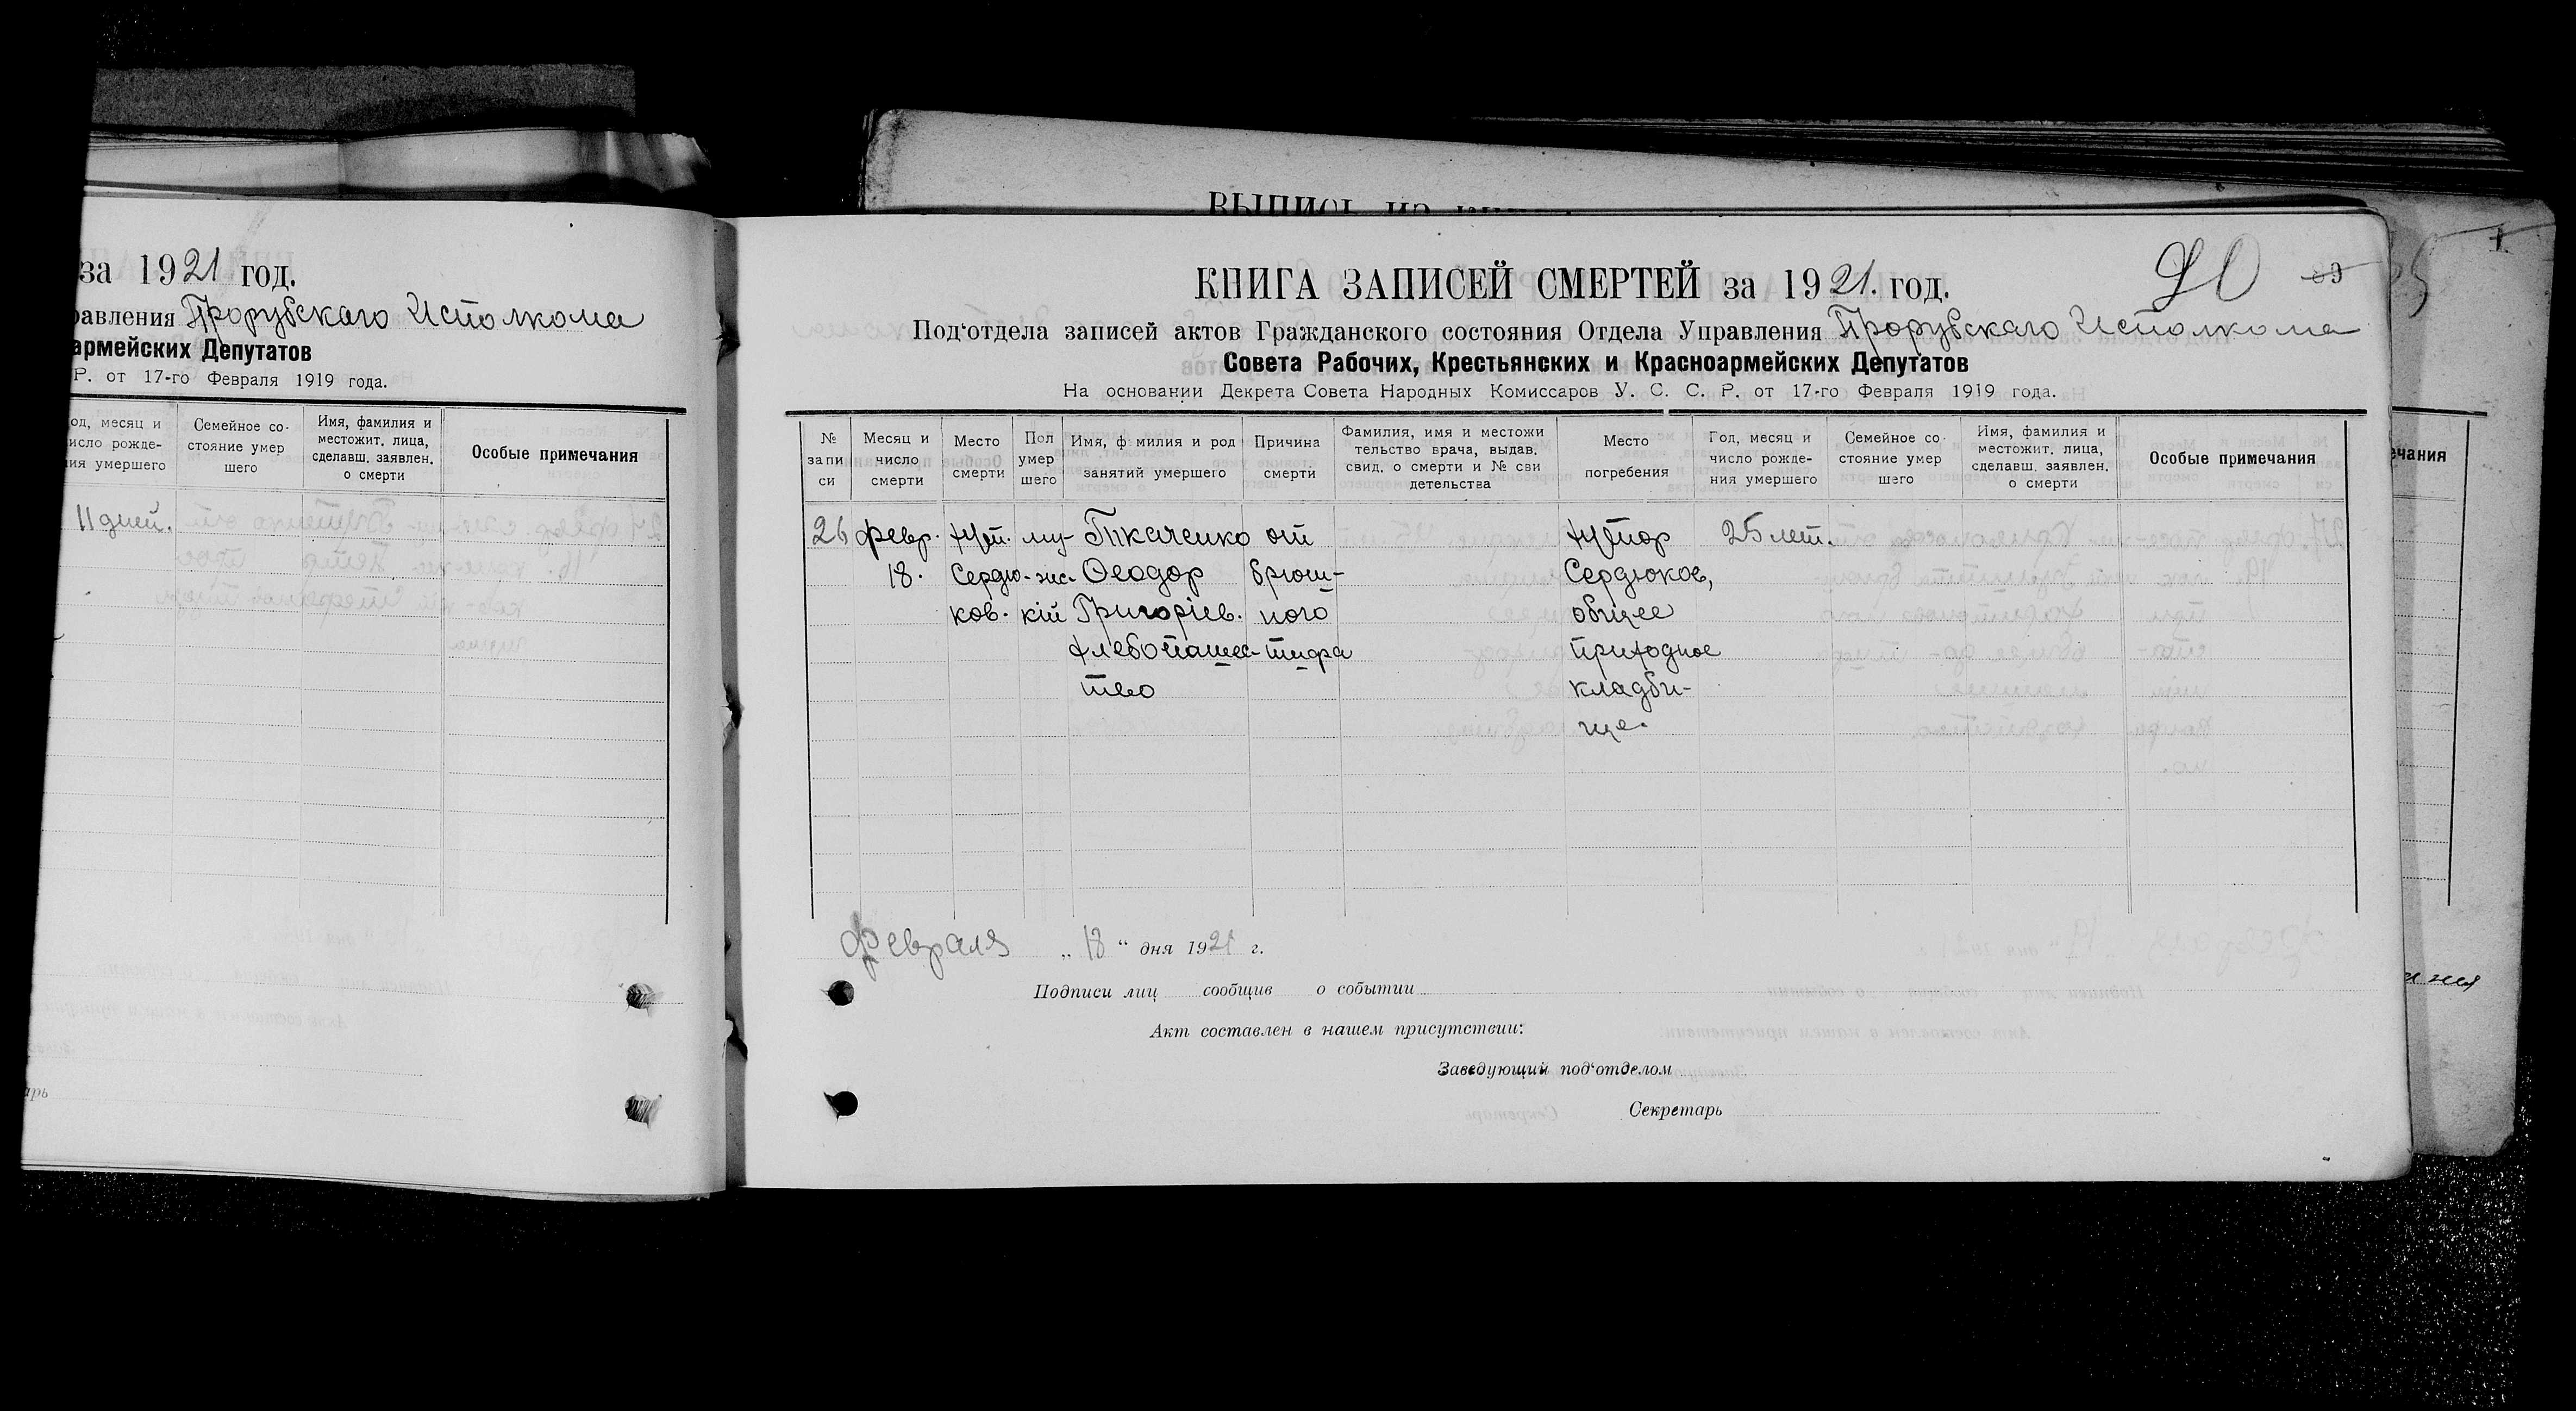 за 1921 год.
равления Прорубскаго Исполкома
армейских Депутатов
Р. от 17-го Февраля 1919 года.
од, месяц и
исло рожде-
ия умершего
Семейное со-
стояние умер
шего
Имя, фамилия и
местожит. лица,
сделавш. заявлен.
о смерти
Особые примечания
11 дней.
арь
ВЫПИСЬ ИЗ
КНИГА ЗАПИСЕЙ СМЕРТЕЙ за 1921. год.
90
Под‘отдела записей актов Гражданского состояния Отдела Управления Прорубскаго Исполкома
Совета Рабочих, Крестьянских и Красноармейских Депутатов
На основании Декрета Совета Народных Комиссаров У. С. С. Р. от 17-го Февраля 1919 года.
№
запи
си
Месяц и
число
смерти
Место
смерти
Пол
умер
шего
Имя, ф милия и род
занятий умершего
Причина
смерти
Фамилия, имя и местожи
тельство врача, выдав.
свид. о смерти и № сви
детельства
Место
погребения
Год, месяц и
число рожде-
ния умершего
Семейное со-
стояние умер
шего
Имя, фамилия и
местожит. лица,
сделавш. заявлен.
о смерти
Особые примечания
26
февр.
18.
хут.
Сердю-
ков.
му-
жс.
кій
Ткаченко
Ѳеодор
Григоріев.
хлебопашес-
тво
от
брюш-
ного
тифа
хутор
Сердюков,
общее
приходное
кладби-
ще.
25 лет.
Февраля „18“ дня 1921 г.
Подписи лиц сообщив о событии
Акт составлен в нашем присутствии:
Заведующий под‘отделом
Секретарь
ечания